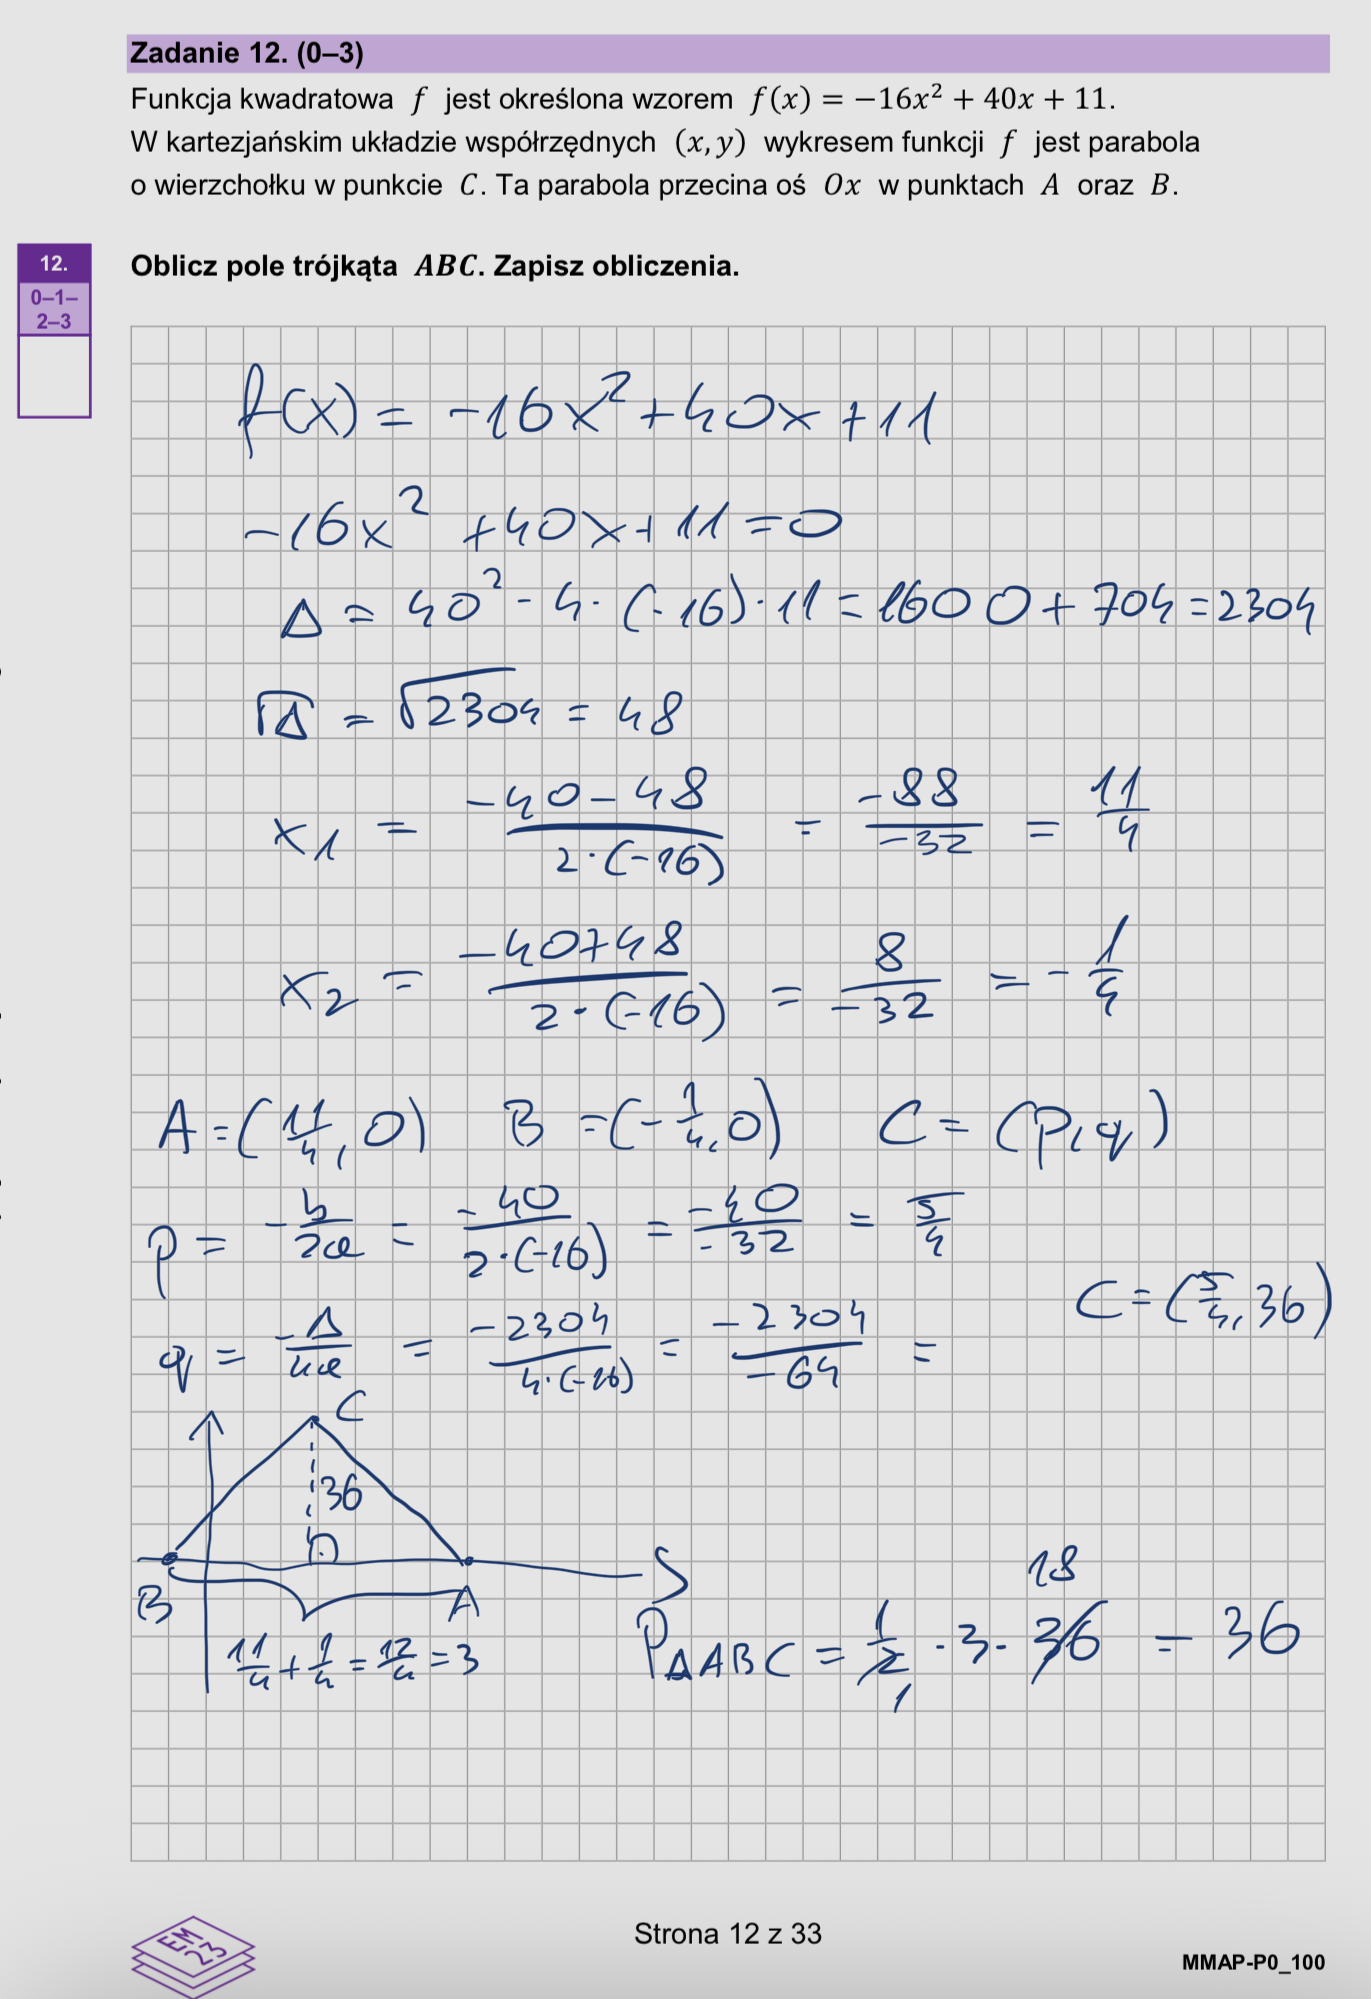 Zadanie 12. (0–3)
Funkcja kwadratowa f jest określona wzorem f(x) = −16x² + 40x + 11.
W kartezjańskim układzie współrzędnych (x, y) wykresem funkcji f jest parabola
o wierzchołku w punkcie C. Ta parabola przecina oś Ox w punktach A oraz B.
12.
0–1–
2–3
Oblicz pole trójkąta ABC. Zapisz obliczenia.
f(x) = -16x² + 40x + 11
-16x² + 40x + 11 = 0
Δ = 40² - 4·(-16)·11 = 1600 + 704 = 2304
√Δ = √2304 = 48
x1 = (-40-48)/(2·(-16)) = -88/-32 = 11/4
x2 = (-40+48)/(2·(-16)) = 8/-32 = -1/4
A = (11/4, 0) B = (-1/4, 0) C = (p, q)
p = -b/2a = -40/(2·(-16)) = -40/-32 = 5/4
C = (5/4, 36)
q = -Δ/4a = -2304/(4·(-16)) = -2304/-64 =
C
36
B
A
11/4 + 1/4 = 12/4 = 3
18
PΔABC = 1/2 · 3 · 36 = 36
1
EM
23
Strona 12 z 33
MMAP-P0_100